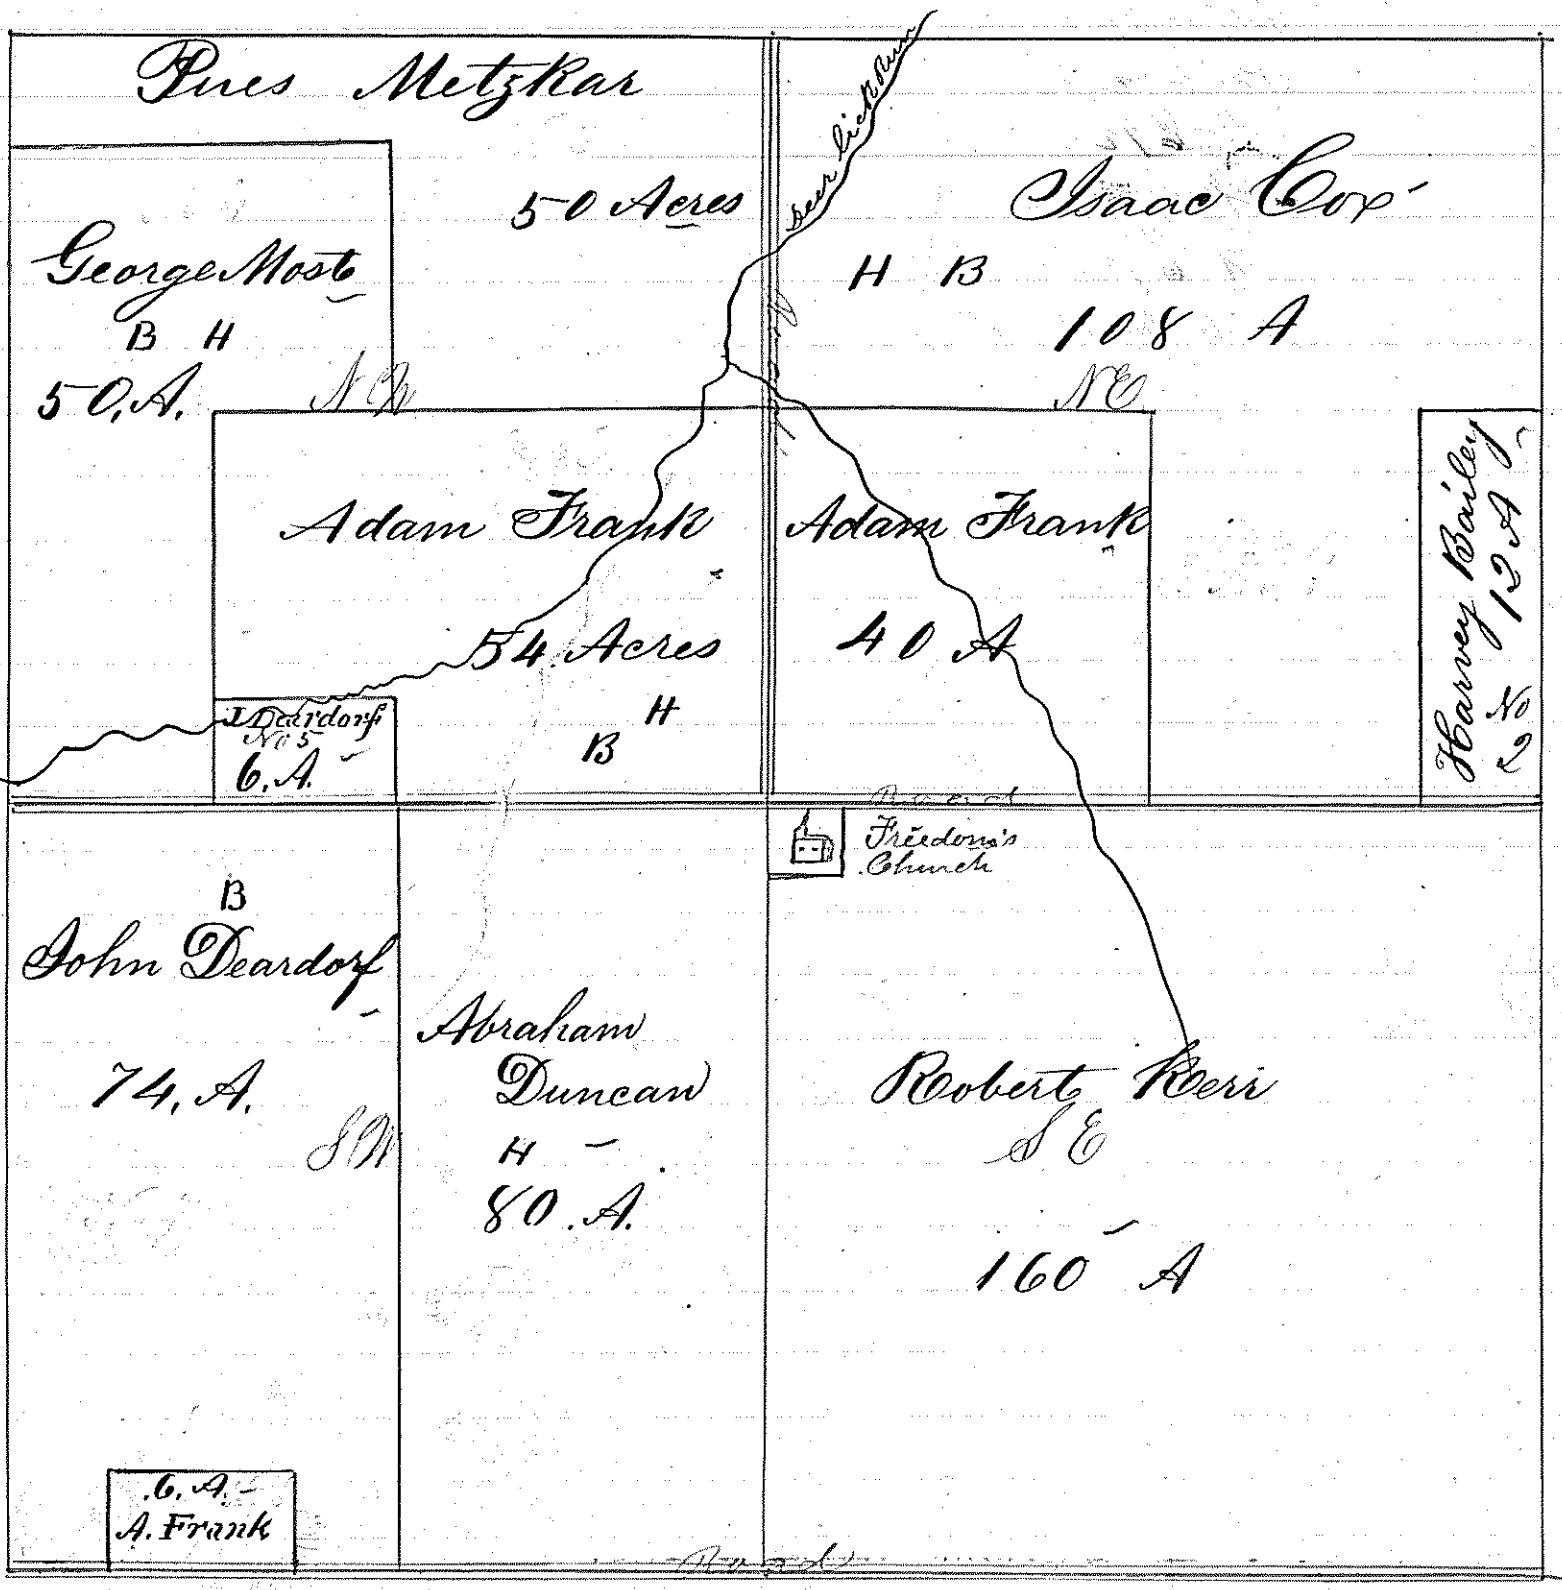 Pues Metzkar
50 Acres
George Most
B H
50. A.
N W
Deer Lick Run
Isaac Cox
H B
108 A
N E
Adam Frank
54 Acres
H
B
Adam Frank
40 A
Harvey Bailey
12 A
No
2
J Deardorf
No 5
6. A.
Road
Freedom's
Church
B
John Deardorf
74. A.
S W
Abraham
Duncan
H
80. A.
Robert Kerr
S E
160 A
6. A.
A. Frank
Road